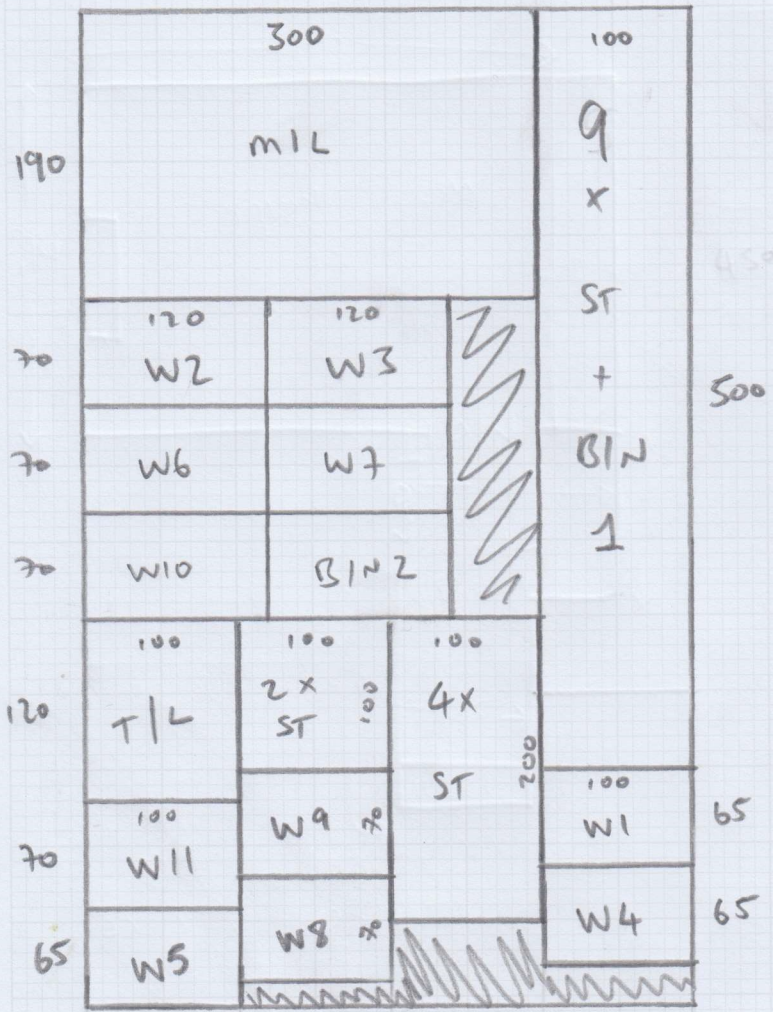 300
100
190
m/L
9
x
ST
+
BIN
1
500
120
120
70
W2
W3
70
W6
W7
70
W10
BIN2
100
100
100
120
T/L
2x
ST
100
4x
ST
200
100
W11
70
W9
70
100
W1
65
65
W5
W8
70
W4
65